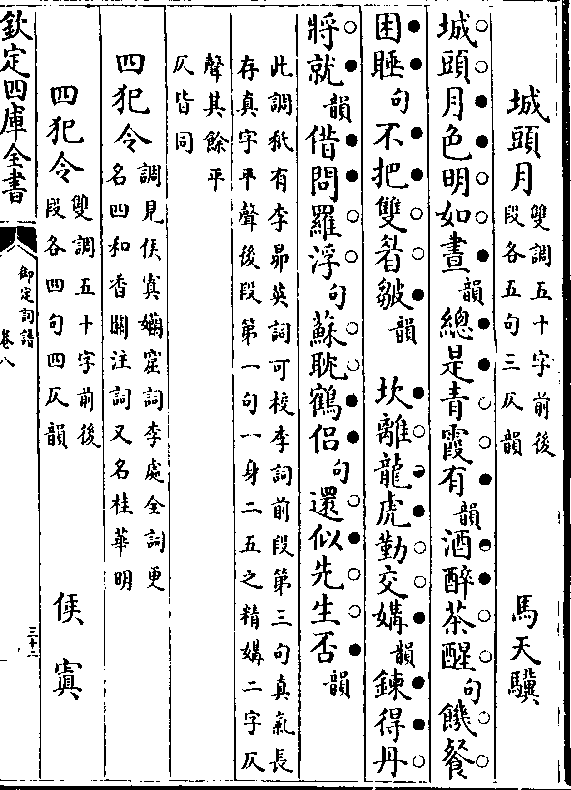 城頭月 雙調五十字前後段各五句三仄韻 馬天驥
城頭月色明如晝韻總是青霞有韻酒醉茶醒句饑餐
困睡句不把雙眉皺韻 坎離龍虎勤交媾韻鍊得丹
將就韻借問羅浮句蘇耽鶴侶句還似先生否韻
此調秖有李昴英詞可校李詞前段第三句真氣長
存真字平聲後段第一句一身二五之精媾二字仄
聲其餘平
仄皆同
四犯令 調見侯寘嬾窟詞李處全詞更
名四和香關注詞又名桂華明
四犯令 雙調五十字前後段各四句四仄韻 侯寘
欽定四庫全書
御定詞譜
卷八
三十二